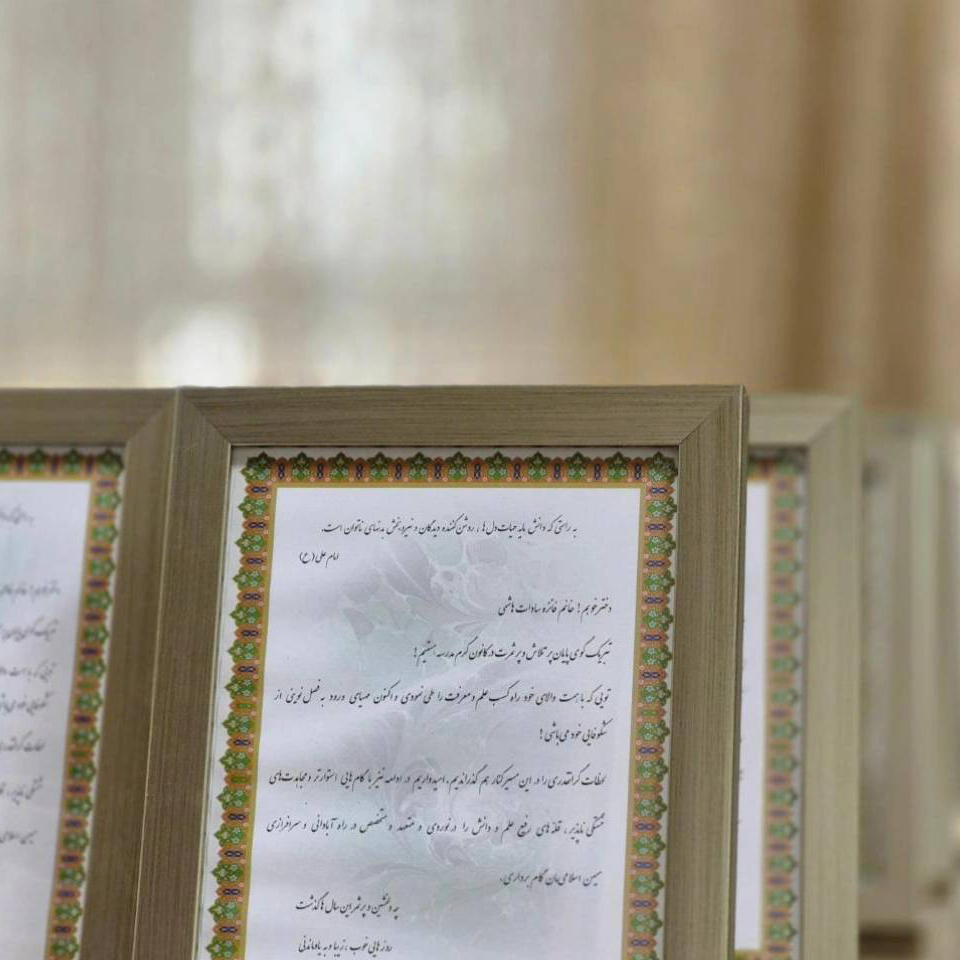 به راستی که دانش مایه حیات دل ها ، روشن کننده دیدگان و نیروبخش بدنهای ناتوان است.
امام علی (ع)
دختر خوبم ! خانم فائزه سادات هاشمی
تبریک گوی پایان پر تلاش و پرثمرت در کانون گرم مدرسه هستیم!
تویی که با همت والای خود راه کسب علم و معرفت را طی نمودی و اکنون مهیای ورود به فصل نوینی از
شکوفایی خود می باشی !
لحظات گرانقدری را در این مسیر کنار هم گذراندیم، امیدواریم در ادامه نیز با گام هایی استوارتر و مجاهدت های
خستگی ناپذیر ، قله های رفیع علم و دانش را درنوردی و متعهد و متخصص در راه آبادانی و سرافرازی
میهن اسلامی مان گام برداری.
چه دلنشین و پر ثمر این سال ها گذشت
روز هایی خوب ، زیبا و به یادماندنی